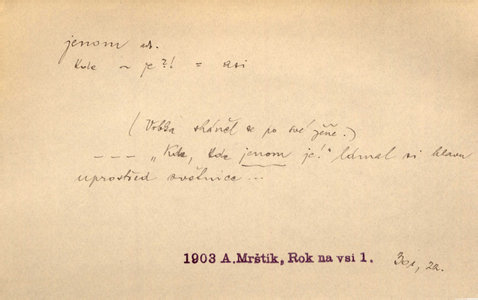 jenom adv.
Kde ~ je?! = asi
(Vrbka sháněl se po své ženě.)
– – – „Kde, kde jenom je!" lámal si hlavu
uprostřed světnice...
1903 A.Mrštík, Rok na vsi 1.